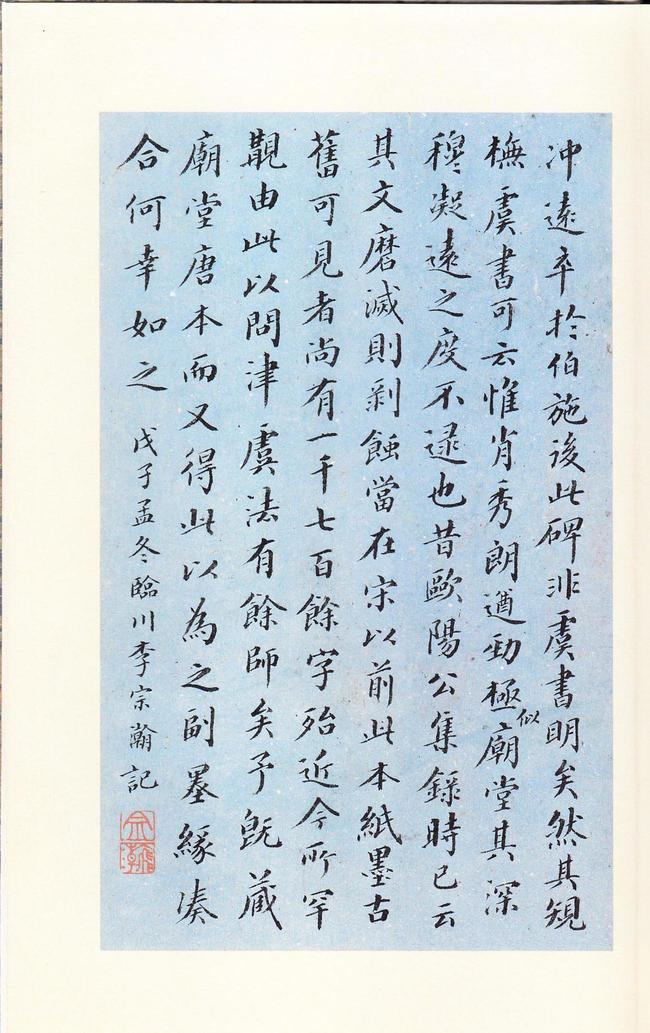 冲遠卒於伯施後此碑非虞書明矣然其規
橅虞書可云惟肖秀朗遒勁極似廟堂其深
穆凝遠之度不逮也昔歐陽公集錄時已云
其文磨滅則剥蝕當在宋以前此本紙墨古
舊可見者尚有一千七百餘字殆近今所罕
覯由此以問津虞法有餘師矣予既藏
廟堂唐本而又得此以為之副墨緣湊
合何幸如之
戊子孟冬臨川李宗瀚記